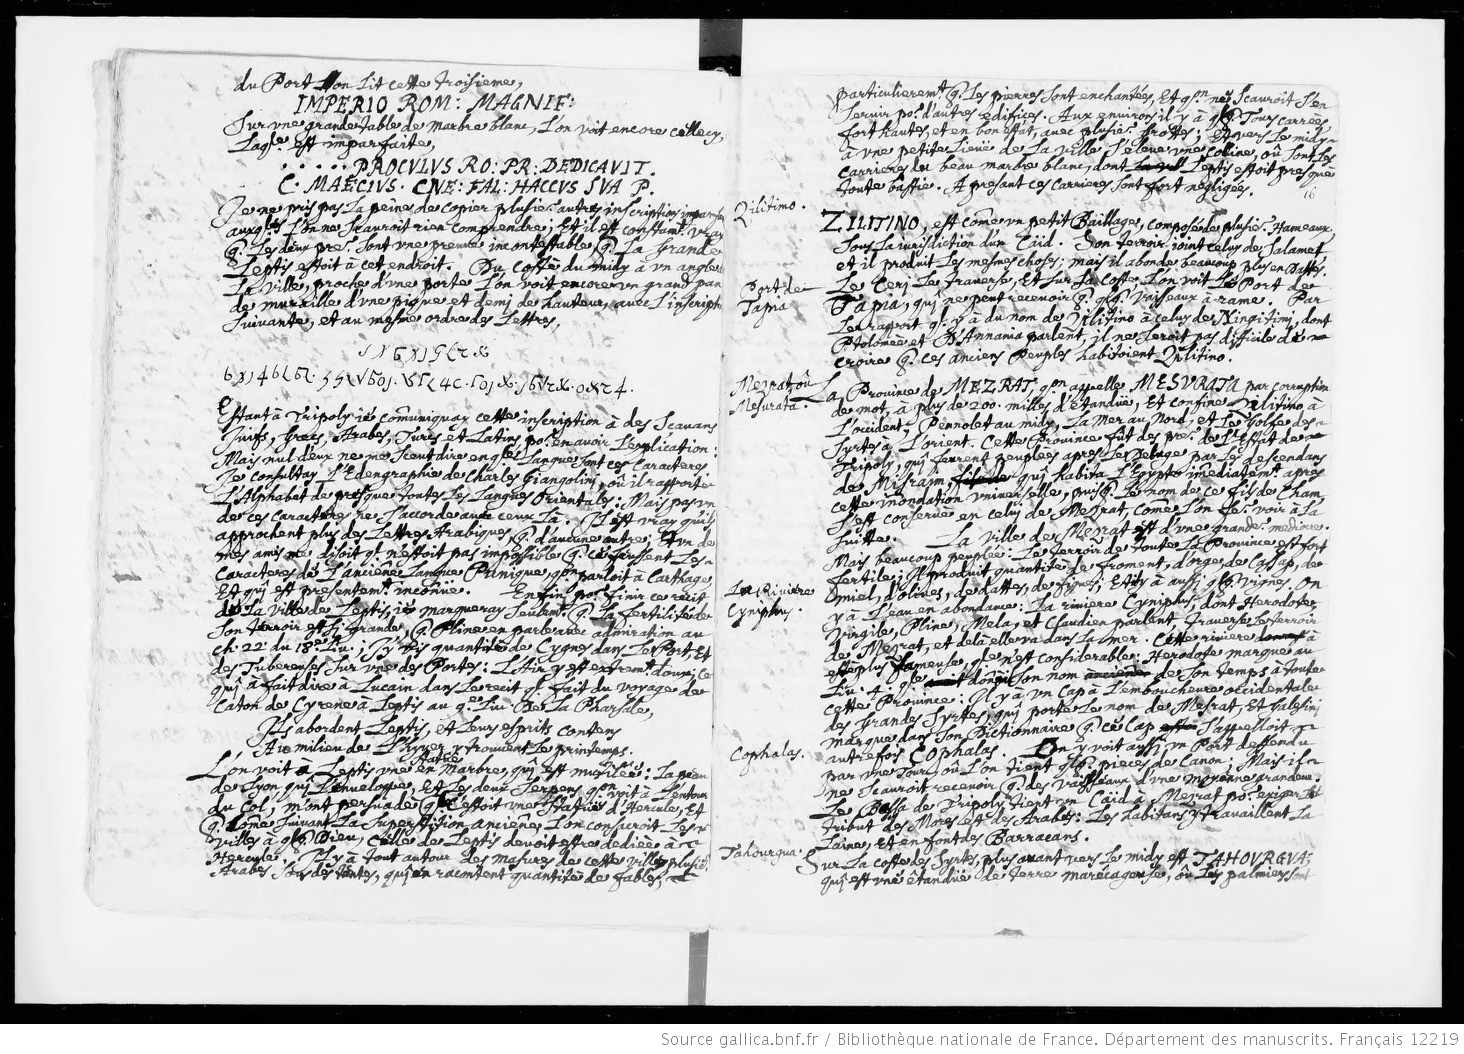 du Port l'on lit cette troisieme,
IMPERIO ROM: MAGNIF:
Sur une grande table de marbre blanc, l'on voit encore celle cy,
laqle est imparfaite,
. . . . . . PROCULUS RO: PR: DEDICAVIT.
C. MAECIVS. CNE: FAL: HACCVS SVA P.
Je ne pris pas la peine de copier plusieurs autres inscriptions
l'on ne scauroit rien comprendre, Et il est constamt vray
q. les deux pres sont une preuve incontestable q. la Grande
Leptis estoit à cet endroit. Du costé du midy à un angle
la ville, proche d'une porte l'on voit encore un grand pan
de muraille d'une pique et demi de hauteur, avec l'inscripti
suivante, et au mesme ordre des lettres,
Estant à Tripoly je communiquay cette inscription à des scavans
Juifs, Grecs, Arabes, Turcs et Latins po. en avoir l'explication:
Mais nul deux ne me sceut dire en qle langue sont ces caracteres.
Je consultay l'Edengraphie de Charles Giangolini, où il rapporte
l'Alphabet de presque toutes les langues Orientales: Mais pas un
de ces caracteres ne s'accorde avec ceux là. Il est vray qu'ils
approchent plus des lettres Arabiques, q. d'aucune autre; Et un de
mes amis me disoit ql n'estoit pas impossible q. ce fussent les
caracteres de l'anciene langue Punique, qon parloit à Carthage,
Et qui est presentemt inconüe. Enfin po. finir ce recit
de la ville de Leptis, je marqueray seulemt q. la fertilité de
son terroir est si grande, q. Pline en parle avec admiration au
ch: 22 du 18e Liu.; J'y vis quantité de Cygnes dans le Port, Et
des Tubereuses sur une des Portes: L'air y est extremt doux, ce
qui à fait dire à Lucain dans le recit ql fait du voyage de
Caton de Cyrene à Leptis au 9e Liu. de la Pharsale,
Ils abordent Leptis, et leurs esprits contens
Au milieu de l'hyver y trouvent le printemps.
Statue
L'on voit à Leptis une en Marbre, qui est mutilée: La peau
de Lyon qui l'enuelope, Et les deux Serpens qon voit à l'entour
du Col, m'ont persuadé q. c'estoit une statue d'Hercule, Et
q. come suivant la superstition anciene l'on consacroit les
villes à qlq. Dieu, Celle de Leptis devoit estre dediée à
Hercule. Il y à tout autour des masures de cette ville plusie.
Arabes sous des tentes, qui en racontent quantité de fables,
particulieremt q. les pierres sont enchantées, Et qon ne scauroit s'en
servir po. d'autres edifices. Aux environs il y à qlq. Tours carrées
fort hautes, et en bon estat, avec plusie. Grottes: Et vers le midy
à une petite lieüe de la ville s'eleve une colline, où sont les
carrieres du beau marbre blanc, dont Leptis estoit presque
toute bastie. A presant ces carrieres sont fort negligées.
16
Zilitino.
ZILITINO, est come un petit Baillage, composé de plusie. Hameaux,
sous la iurisdiction d'un Caïd. Son terroir joint celuy de Salamet
et il produit les mesmes choses, mais il abonde beaucoup plus en Dattes.
Port de
Tapia
Le Ceri le traverse, Et sur sa coste, l'on voit le Port de
Tapia, qui ne peut recevoir q. qlq. Vaisseaux à rame. Par
le rapport ql y à du nom de Zilitino à celuy de Ningitimi, dont
Ptolomée et D'Annania parlent, il ne seroit pas difficile de
croire q. ces anciens Peuples habitoient Zilitino.
Mezrat où
Mesurata.
La Province de MEZRAT, qon appelle MESURATA par corruption
de mot, à plus de 200. milles d'étandüe, Et confine Zilitino à
l'occident, Pennolet au midy, la Mer au Nord, et le Golfe des
Syrtes à l'orient. Cette Province fut des pres de l'Estat de
Tripoly, qui furent peuplées apres le Deluge par les descendans
de Misraim, qui habita l'Egypte imediatemt apres
cette inondation universelle, puis q. le nom de ce fils de Cham,
s'est conservé en celuy de Mezrat come l'on le voir à la
suitte. La ville de Mezrat est d'une grande. mediocre.
Mais beaucoup peuplée: Le terroir de toute la Province est fort
fertile; Il produit quantité de froment, d'orge, de
miel, d'olives, de dattes, de figues; Et il y à aussi qlq. Vignes. On
La Riviere
Cyniphus.
y à l'eau en abondance: La riviere Cyniphus, dont Herodote,
Virgile, Pline, Mela, et Claudien parlent, traverse le terroir
de Mezrat, et de là elle va dans la mer. Cette riviere à
esté plus fameuse, qle n'est considerable: Herodote marque au
Liu. 4. qle donoit son nom de son temps à toute
cette Province: Il y à un Cap à l'embouchure occidentale
des Grandes Syrtes, qui porte le nom de Mesrat, Et
marque dans son Dictionnaire q. ce Cap s'appelloit
Cophalas.
autrefois COPHALAS. On y voit aussi un Port deffendu
par une Tour, où l'on tient qlq. pieces de Canon; Mais il
ne scauroit recevoir q. des vaisseaux d'une moyenne grandeur.
Le Bassa de Tripoly tient un Caïd à Mezrat po. exiger le
tribut des Mores et des Arabes: Les habitans y travaillent la
laine, Et en font des Barracans.
Tahourgua.
Sur la coste des Syrtes, plus avant vers le midy est TAHOURGUA,
qui est une étandüe de terre marecageuse, où les palmiers sont
Source gallica.bnf.fr / Bibliothèque nationale de France. Département des manuscrits. Français 12219